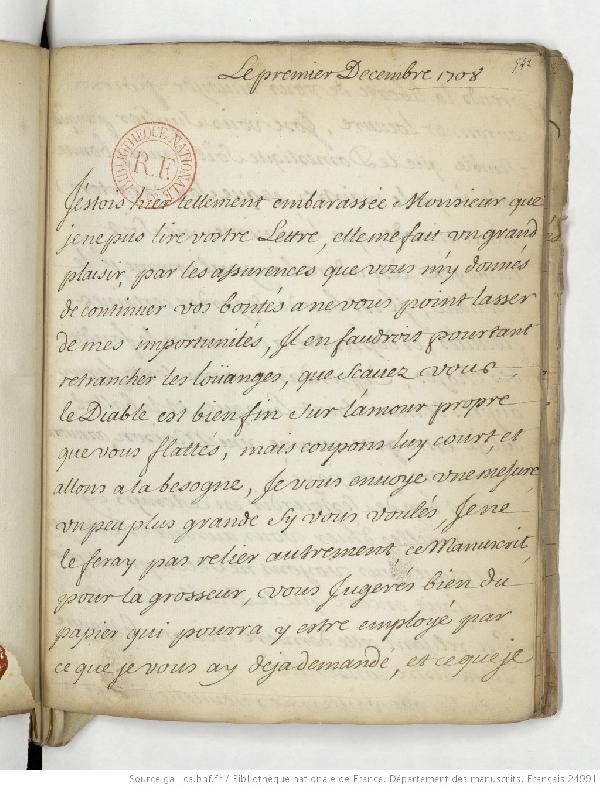 Le premier Decembre 1708
BIBLIOTHEQUE NATIONALE
R.F.
J'estois hier tellement embarassée Monsieur que
je ne pus lire vostre Lettre, elle me fait un grand
plaisir, par les assurences que vous m'y donnes
de continuer vos bontés a ne vous point lasser
de mes importunités, Il en faudroit pourtant
retrancher les loüanges, que scauez vous
le Diable est bien fin sur l'amour propre
que vous flattes, mais coupons luy court, et
allons a la besogne, Je vous enuoye une mesure
un peu plus grande sy vous voulés, Je ne
le feray pas relier autrement, ce Manuscrit
pour la grosseur, vous Jugerés bien du
papier qui pourra y estre employé par
ce que je vous ay deja demande, et ce que je
Source gallica.bnf.fr / Bibliothèque nationale de France. Département des manuscrits. Français 24991